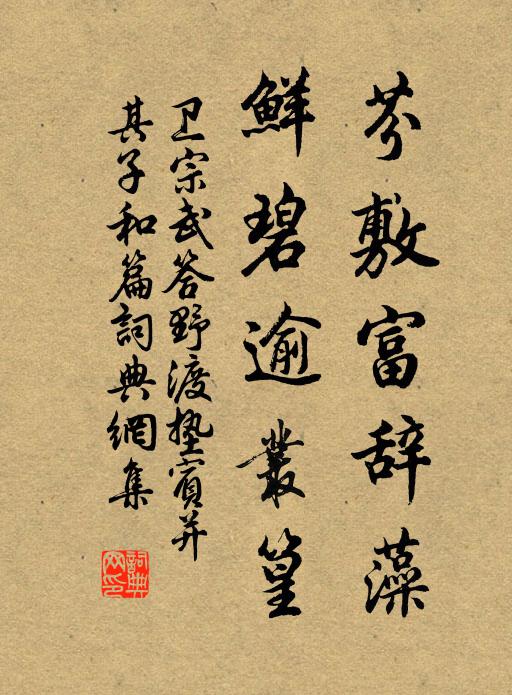 芬敷富辞藻
鲜碧逾丛篁
卫宗武答野渡垫宾并
其子和篇词典網集
詞典網印